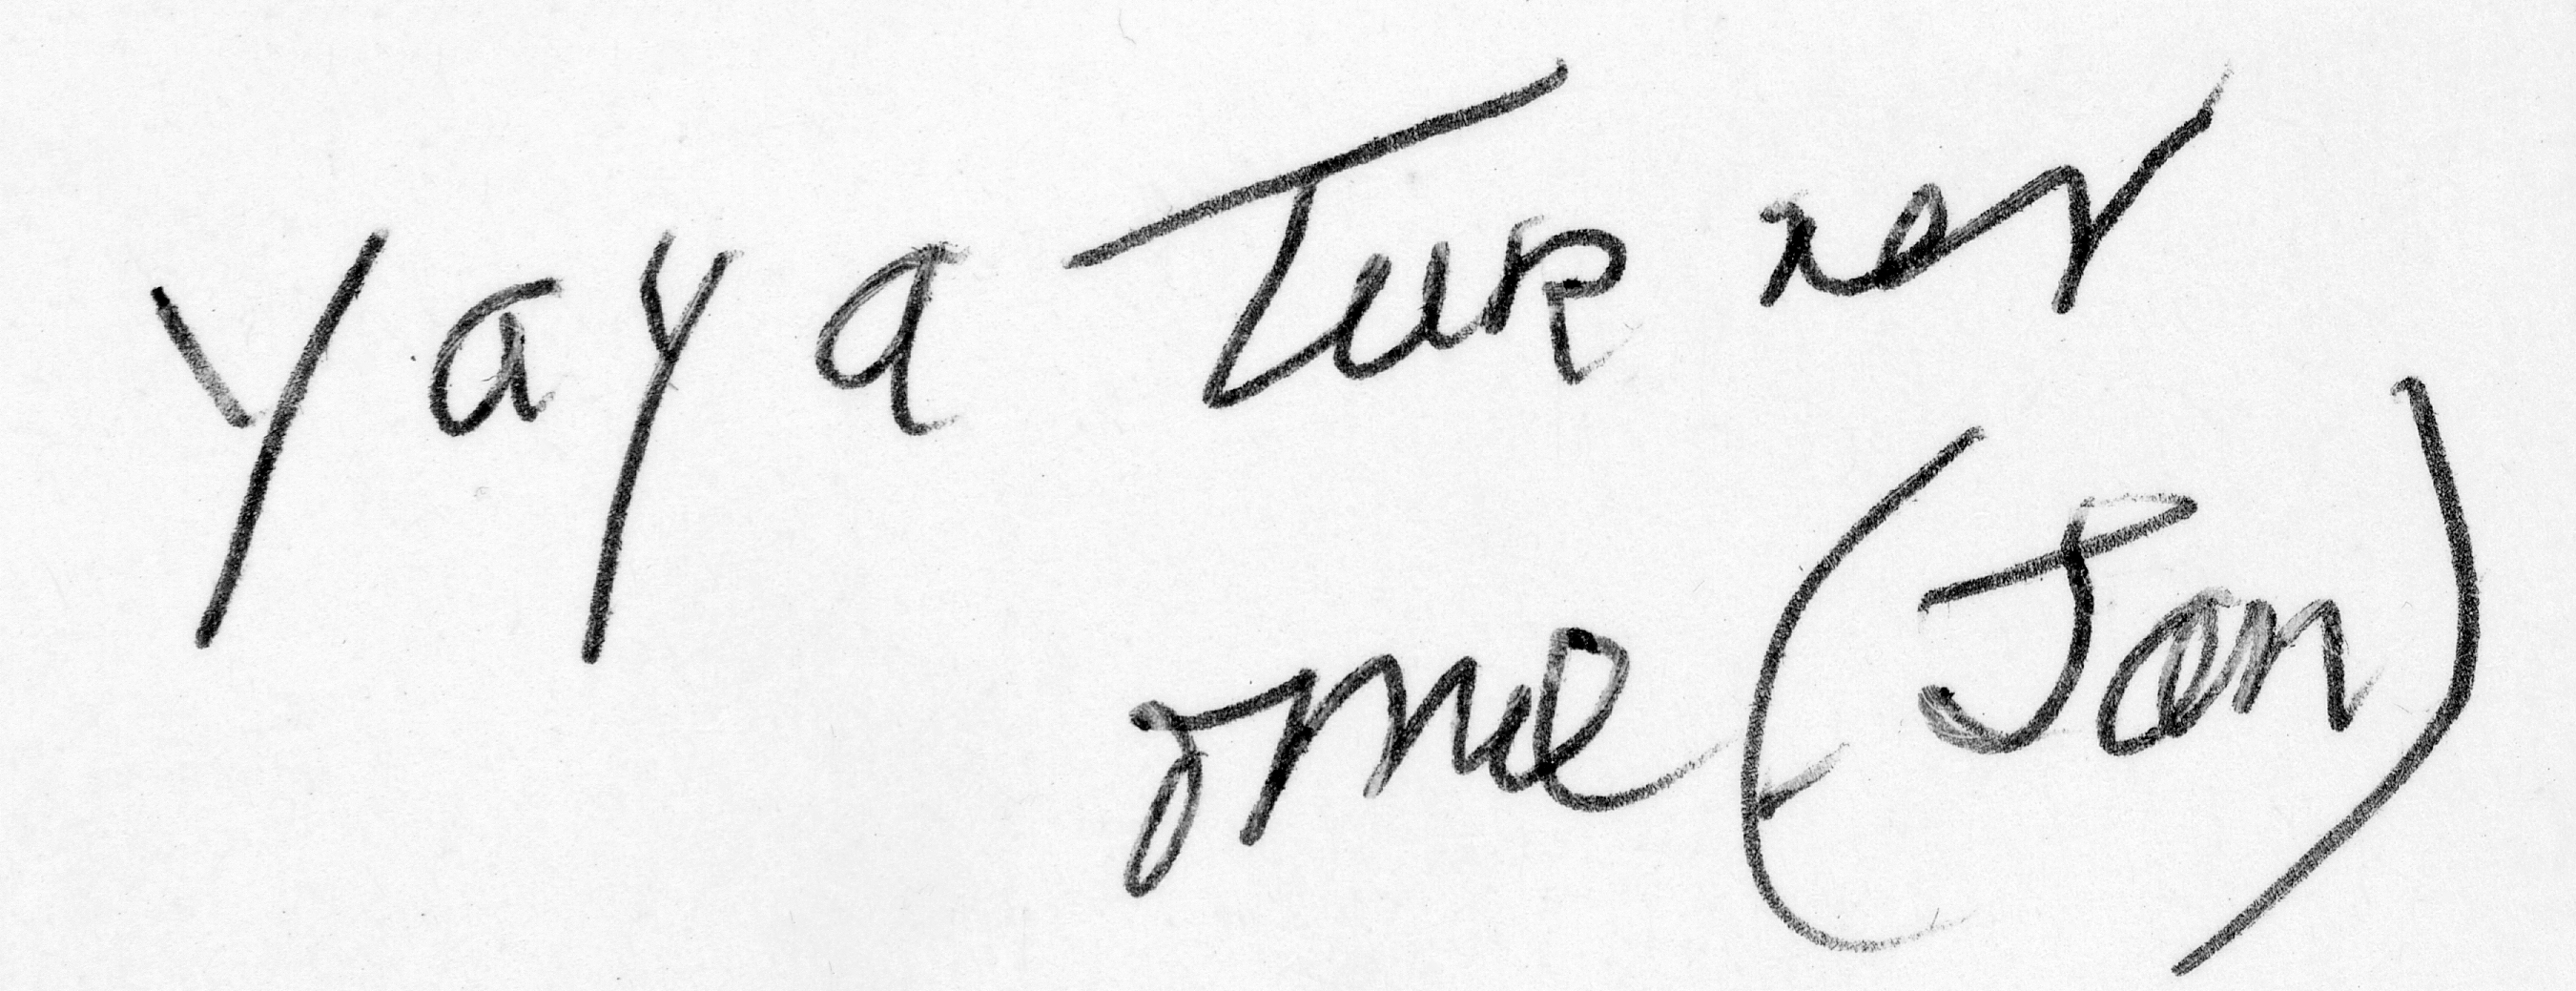 Yaya Turner
me (Jan)